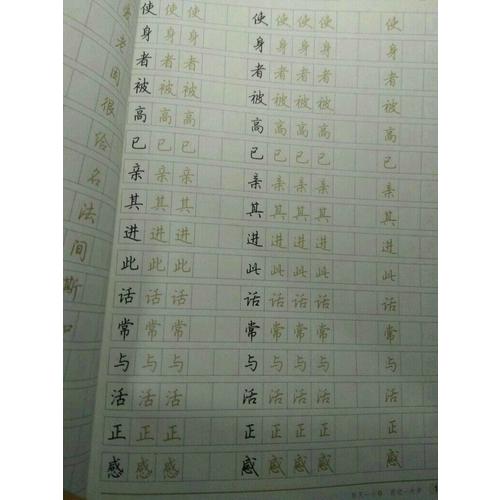 使 使 使 使 使 使 使 使
身 身 身 身 身 身 身 身
者 者 者 者 者 者 者 者
被 被 被 被 被 被 被 被
高 高 高 高 高 高 高 高
已 已 已 已 已 已 已 已
亲 亲 亲 亲 亲 亲 亲 亲
其 其 其 其 其 其 其 其
进 进 进 进 进 进 进 进
此 此 此 此 此 此 此 此
话 话 话 话 话 话 话 话
常 常 常 常 常 常 常 常
与 与 与 与 与 与 与 与
活 活 活 活 活 活 活 活
正 正 正 正 正 正 正 正
感 感 感 感 感 感 感 感
老
因
很
给
名
法
间
斯